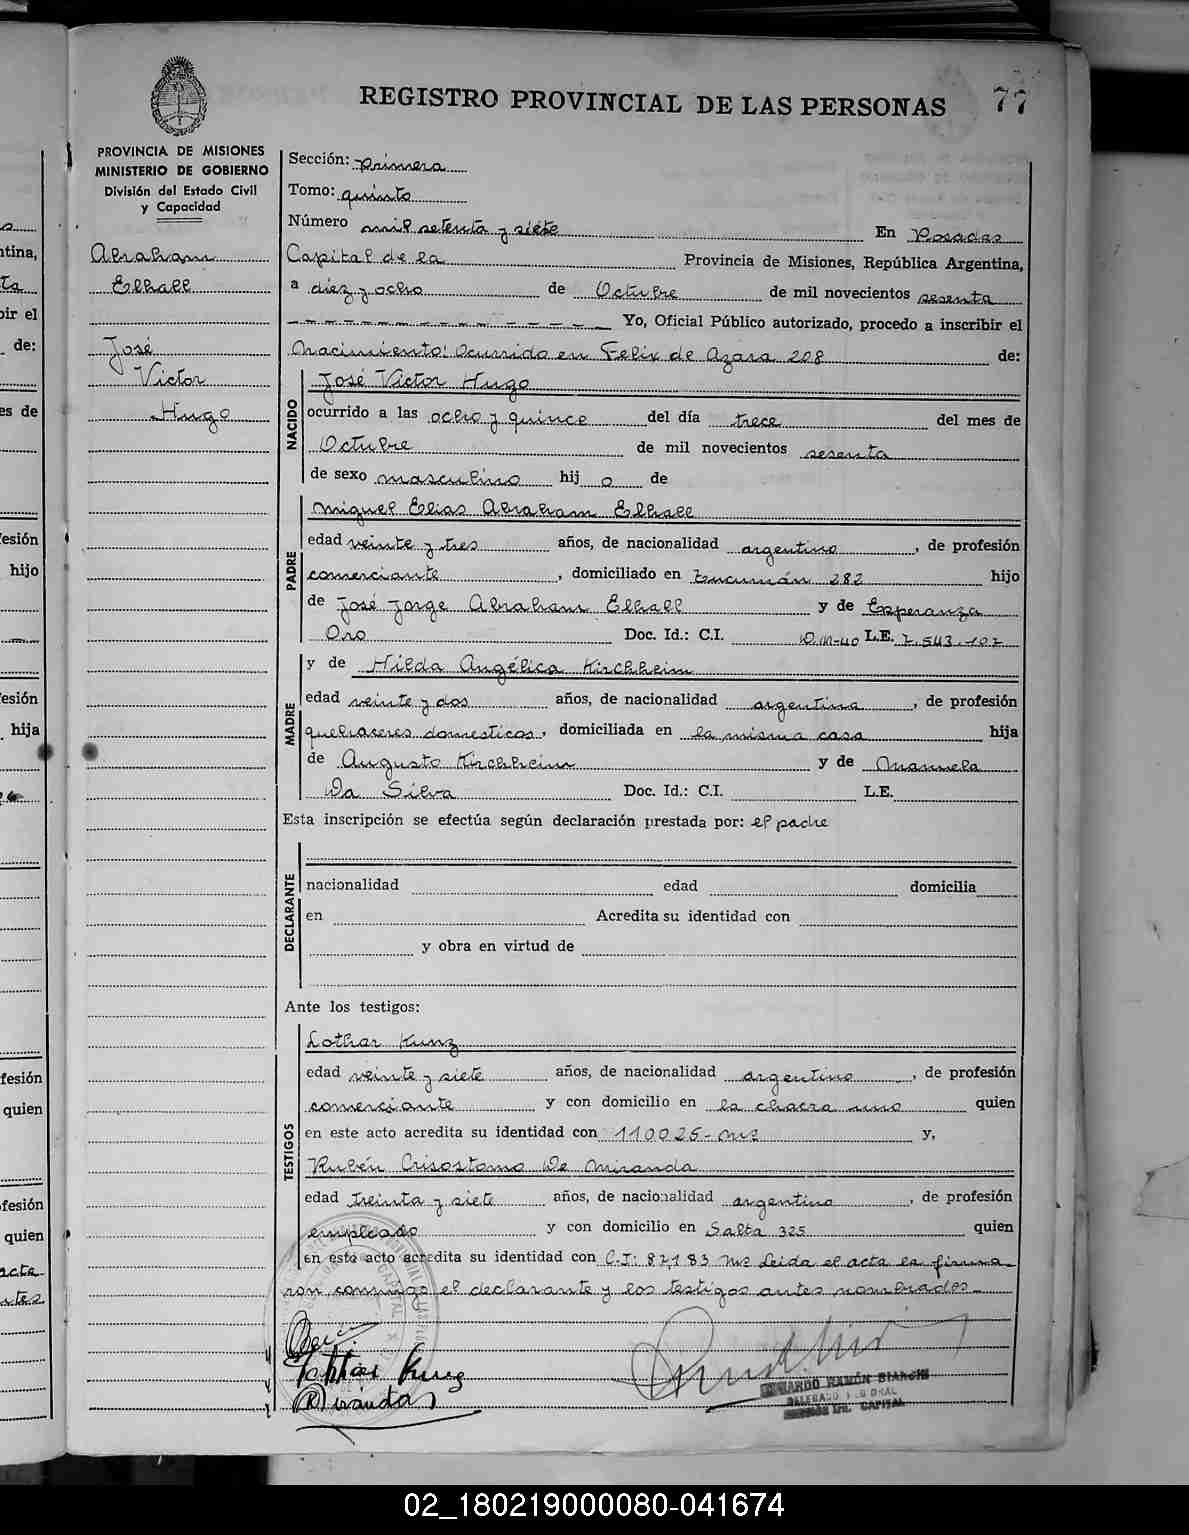 REGISTRO PROVINCIAL DE LAS PERSONAS 77
PROVINCIA DE MISIONES
MINISTERIO DE GOBIERNO
División del Estado Civil
y Capacidad
Abraham
Elhall
José
Victor
Hugo
Sección: primera
Tomo: quinto
Número mil setenta y siete En Posadas
Capital de la Provincia de Misiones, República Argentina,
a diez y ocho de Octubre de mil novecientos sesenta
Yo, Oficial Público autorizado, procedo a inscribir el
nacimiento: ocurrido en Felix de Azara 208 de:
NACIDO
José Victor Hugo
ocurrido a las ocho y quince del día trece del mes de
Octubre de mil novecientos sesenta
de sexo masculino hij o de
PADRE
Miguel Elias Abraham Elhall
edad veinte y tres años, de nacionalidad argentino, de profesión
comerciante, domiciliado en tucumán 282 hijo
de José Jorge Abraham Elhall y de Esperanza
Oro Doc. Id.: C.I. D.M-40 L.E. 7.543.107
MADRE
y de Hilda Angélica Kirchheim
edad veinte y dos años, de nacionalidad argentina, de profesión
quehaceres domesticos, domiciliada en la misma casa hija
de Augusto Kirchheim y de Manuela
Da Silva Doc. Id.: C.I. L.E.
Esta inscripción se efectúa según declaración prestada por: el padre
DECLARANTE
nacionalidad edad domicilia
en Acredita su identidad con
y obra en virtud de
Ante los testigos:
TESTIGOS
Lothar Kunz
edad veinte y siete años, de nacionalidad argentino, de profesión
comerciante y con domicilio en la chacra uno quien
en este acto acredita su identidad con 110025-Ms y,
Rubén Crisostomo De Miranda
edad treinta y siete años, de nacionalidad argentino, de profesión
empleado y con domicilio en Salta 325 quien
en este acto acredita su identidad con C.I: 87183 Ms Leida el acta la firma-
ron conmigo el declarante y los testigos antes nombrados.
Lothar Kunz
Miranda
RAMÓN BIANCHI
CAPITAL
02_180219000080-041674